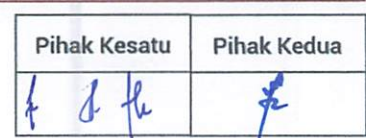 Pihak Kesatu Pihak Kedua